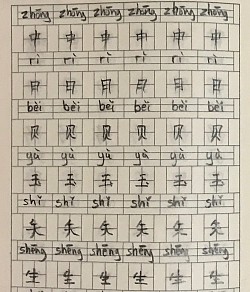 zhōng zhōng zhōng zhōng zhōng zhōng
中 中 中 中 中 中
rì rì rì rì rì rì
日 日 日 日 日 日
bèi bèi bèi bèi bèi bèi
贝 贝 贝 贝 贝 贝
yù yù yù yù yù yù
玉 玉 玉 玉 玉 玉
shǐ shǐ shǐ shǐ shǐ shǐ
矢 矢 矢 矢 矢 矢
shēng shēng shēng shēng shēng shēng
生 生 生 生 生 生